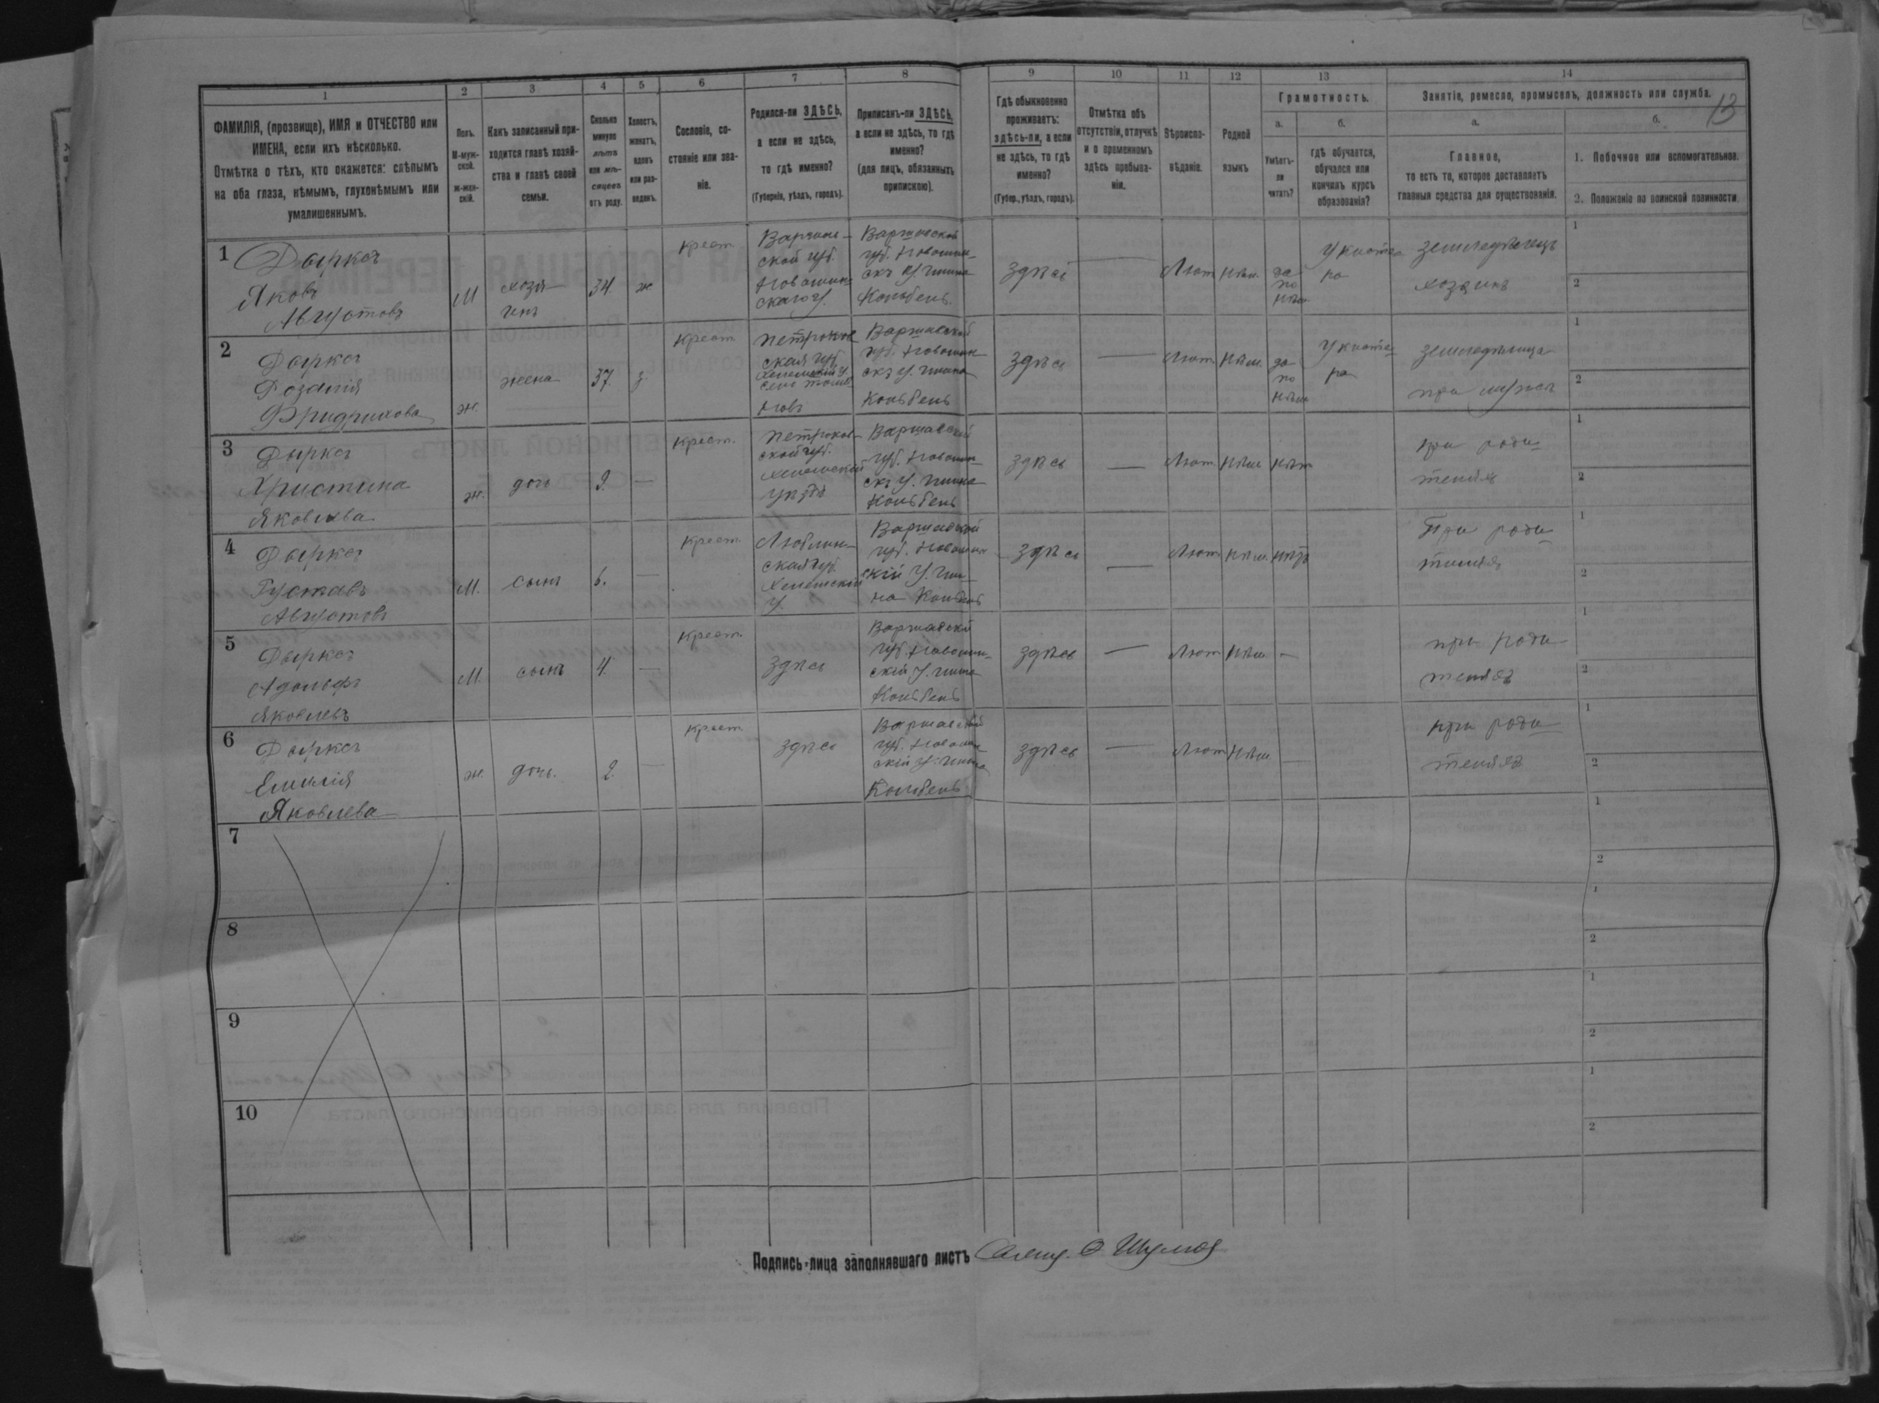 1 2 3 4 5 6 7 8 9 10 11 12 13 14
13
ФАМИЛІЯ, (прозвище), ИМЯ и ОТЧЕСТВО или
ИМЕНА, если ихъ нѣсколько.
Отмѣтка о тѣхъ, кто окажется: слѣпымъ
на оба глаза, нѣмымъ, глухонѣмымъ или
умалишеннымъ.
Полъ.
М-муж-
ской.
ж-жен-
скій.
Какъ записанный при-
ходится главѣ хозяй-
ства и главѣ своей
семьи.
Сколько
минуло
лѣтъ
или мѣ-
сяцевъ
отъ роду.
Холостъ,
женатъ,
вдовъ
или раз-
веденъ.
Сословіе, со-
стояніе или зва-
ніе.
Родился-ли ЗДѢСЬ,
а если не здѣсь,
то гдѣ именно?
(Губернія, уѣздъ, городъ).
Приписанъ-ли ЗДѢСЬ,
а если не здѣсь, то гдѣ
именно?
(для лицъ, обязанныхъ
припискою).
Гдѣ обыкновенно
проживаетъ:
здѣсь-ли, а если
не здѣсь, то гдѣ
именно?
(Губер., уѣздъ, городъ).
Отмѣтка объ
отсутствіи, отлучкѣ
и о временномъ
здѣсь пребыва-
ніи.
Вѣроиспо-
вѣданіе.
Родной
языкъ
Грамотность.
а.
Умѣетъ-
ли
читать?
б.
гдѣ обучается,
обучался или
кончилъ курсъ
образованія?
Занятіе, ремесло, промыселъ, должность или служба.
а.
Главное,
то есть то, которое доставляетъ
главныя средства для существованія.
б.
1. Побочное или вспомогательное.
2. Положеніе по воинской повинности
1
Дыркъ
Яковъ
Августовъ
М
хозя-
инъ
34
ж
крест.
Варшав-
ской губ.
Новомин-
скаго у.
Варшавской
губ. Новомин-
скъ у. гмина
Колбель
здѣсь
—
Лют
нѣм.
да
по
нѣм
У кантора
земледѣлецъ
хозяинъ
1
2
2
Дыркъ
Розалія
Фридрихова
ж.
жена
37
з.
крест
Варшавской
губ. Новомин-
скъ у. гмина
Колбель
здѣсь
—
Лют
нѣм.
да
по
нѣм
У кантора
при мужѣ
1
2
3
Дыркъ
Христина
Яковлева
ж.
доч
9.
—
крест.
Варшавской
губ. Новомин-
скъ у. гмина
Колбель
здѣсь
—
Лют
нѣм
нѣт
при роди-
теляхъ
1
2
4
Дыркъ
Густавъ
Августовъ
М.
сынъ
6.
—
крест
Люблин-
ская губ.
у.
Варшавской
губ. Новомин-
скій у. гми-
на Колбель
здѣсь
—
Лют
нѣм
нѣтъ
При роди-
теляхъ
1
2
5
Дыркъ
Адольфъ
Яковлевъ
М.
сынъ
4.
—
крест.
здѣсь
Варшавской
губ. Новомин-
скій у. гмина
Колбель
здѣсь
—
Лют
нѣм
—
при роди-
теляхъ
1
2
6
Дыркъ
Емилія
Яковлева
ж.
дочь.
2.
—
крест
здѣсь
Варшавской
губ. Новомин-
скій у. гмина
Колбель
здѣсь
—
Лют
нѣм
—
при роди-
теляхъ
1
2
7
1
2
8
1
2
9
1
2
10
1
2
Подпись лица заполнявшаго листъ